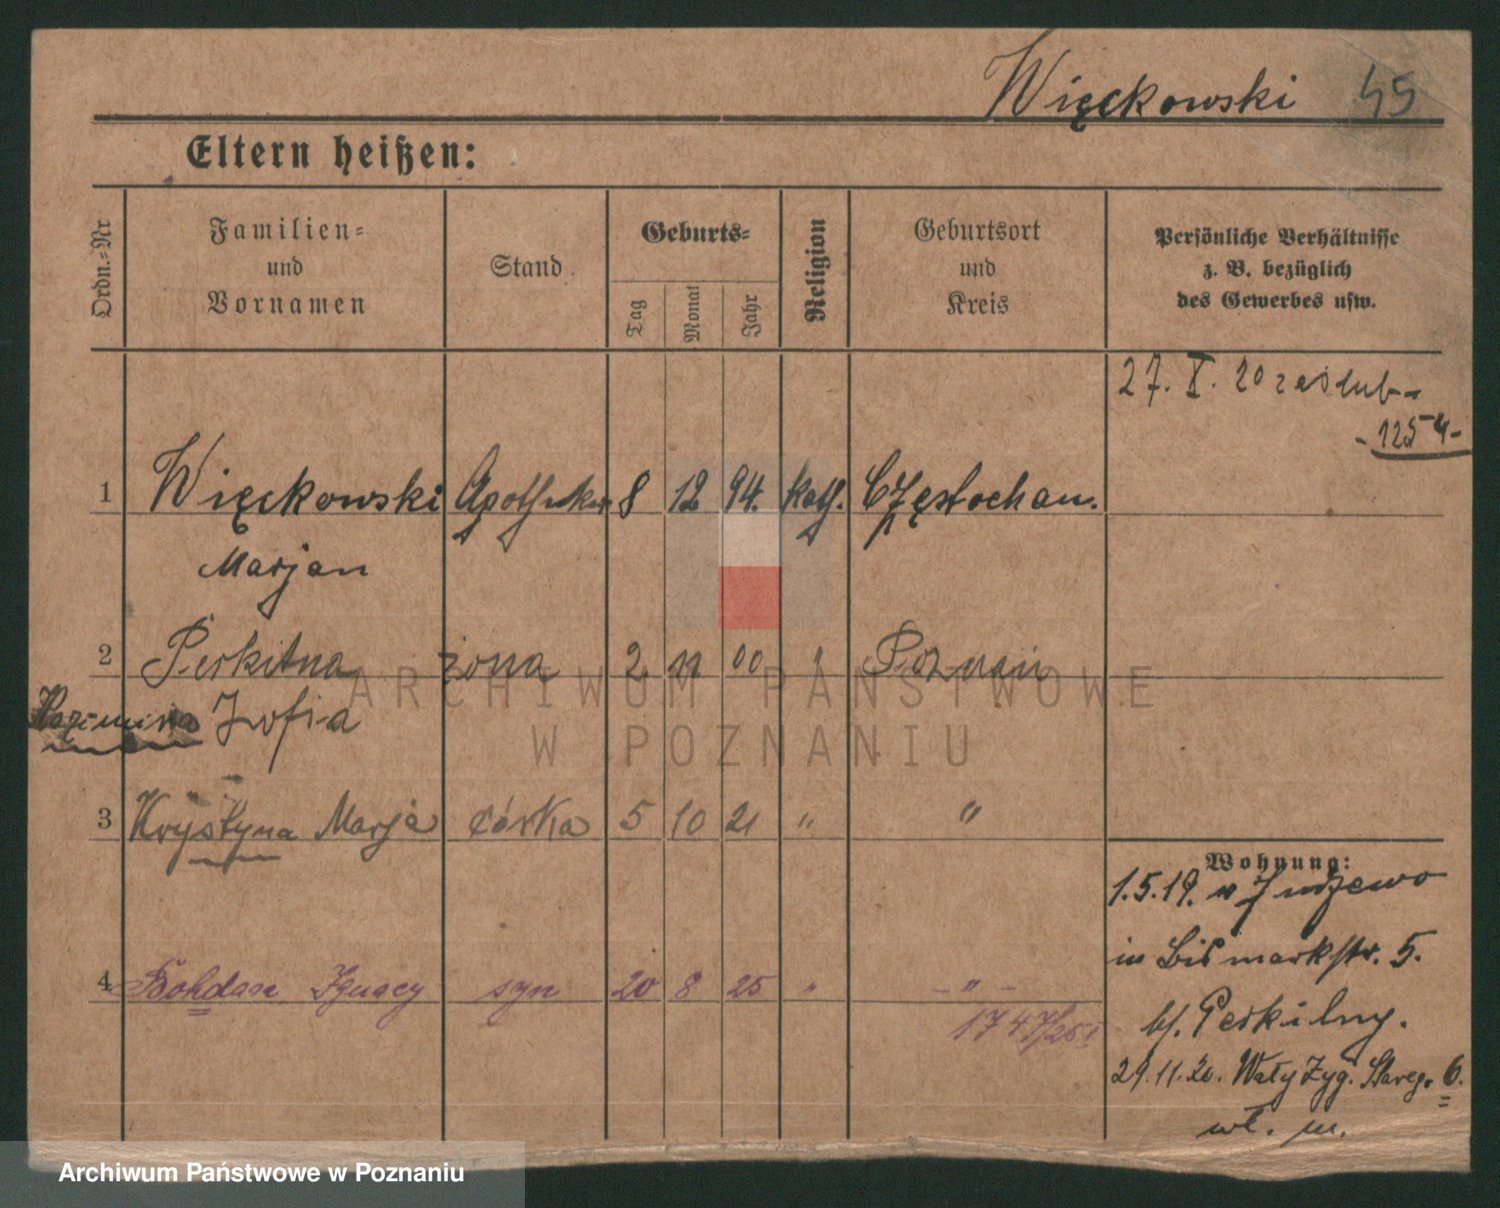 Więckowski 45
Eltern heißen:
Ordn.-Nr
Familien-
und
Vornamen
Stand
Geburts-
Tag
Monat
Jahr
Religion
Geburtsort
und
Kreis
Persönliche Verhältnisse
z. B. bezüglich
des Gewerbes usw.
27. X. 20 zaślub-
-1254-
1 Więckowski Apotheker 8 12 94. kath. Częstochau.
Marjan
2 Perkitna żona 2 11 00 " Poznań
Kazimira Zofia
3 Krystyna Marja córka 5 10 21 " "
4 Bohdan Ignacy syn 20 8 25 " - " -
Wohnung:
1.5.19.
in Bismarkstr. 5.
b/. Perkitny.
29.11.20. Wały Zyg. Stareg. 6.
wł. m.
ARCHIWUM PAŃSTWOWE
W POZNANIU
Archiwum Państwowe w Poznaniu